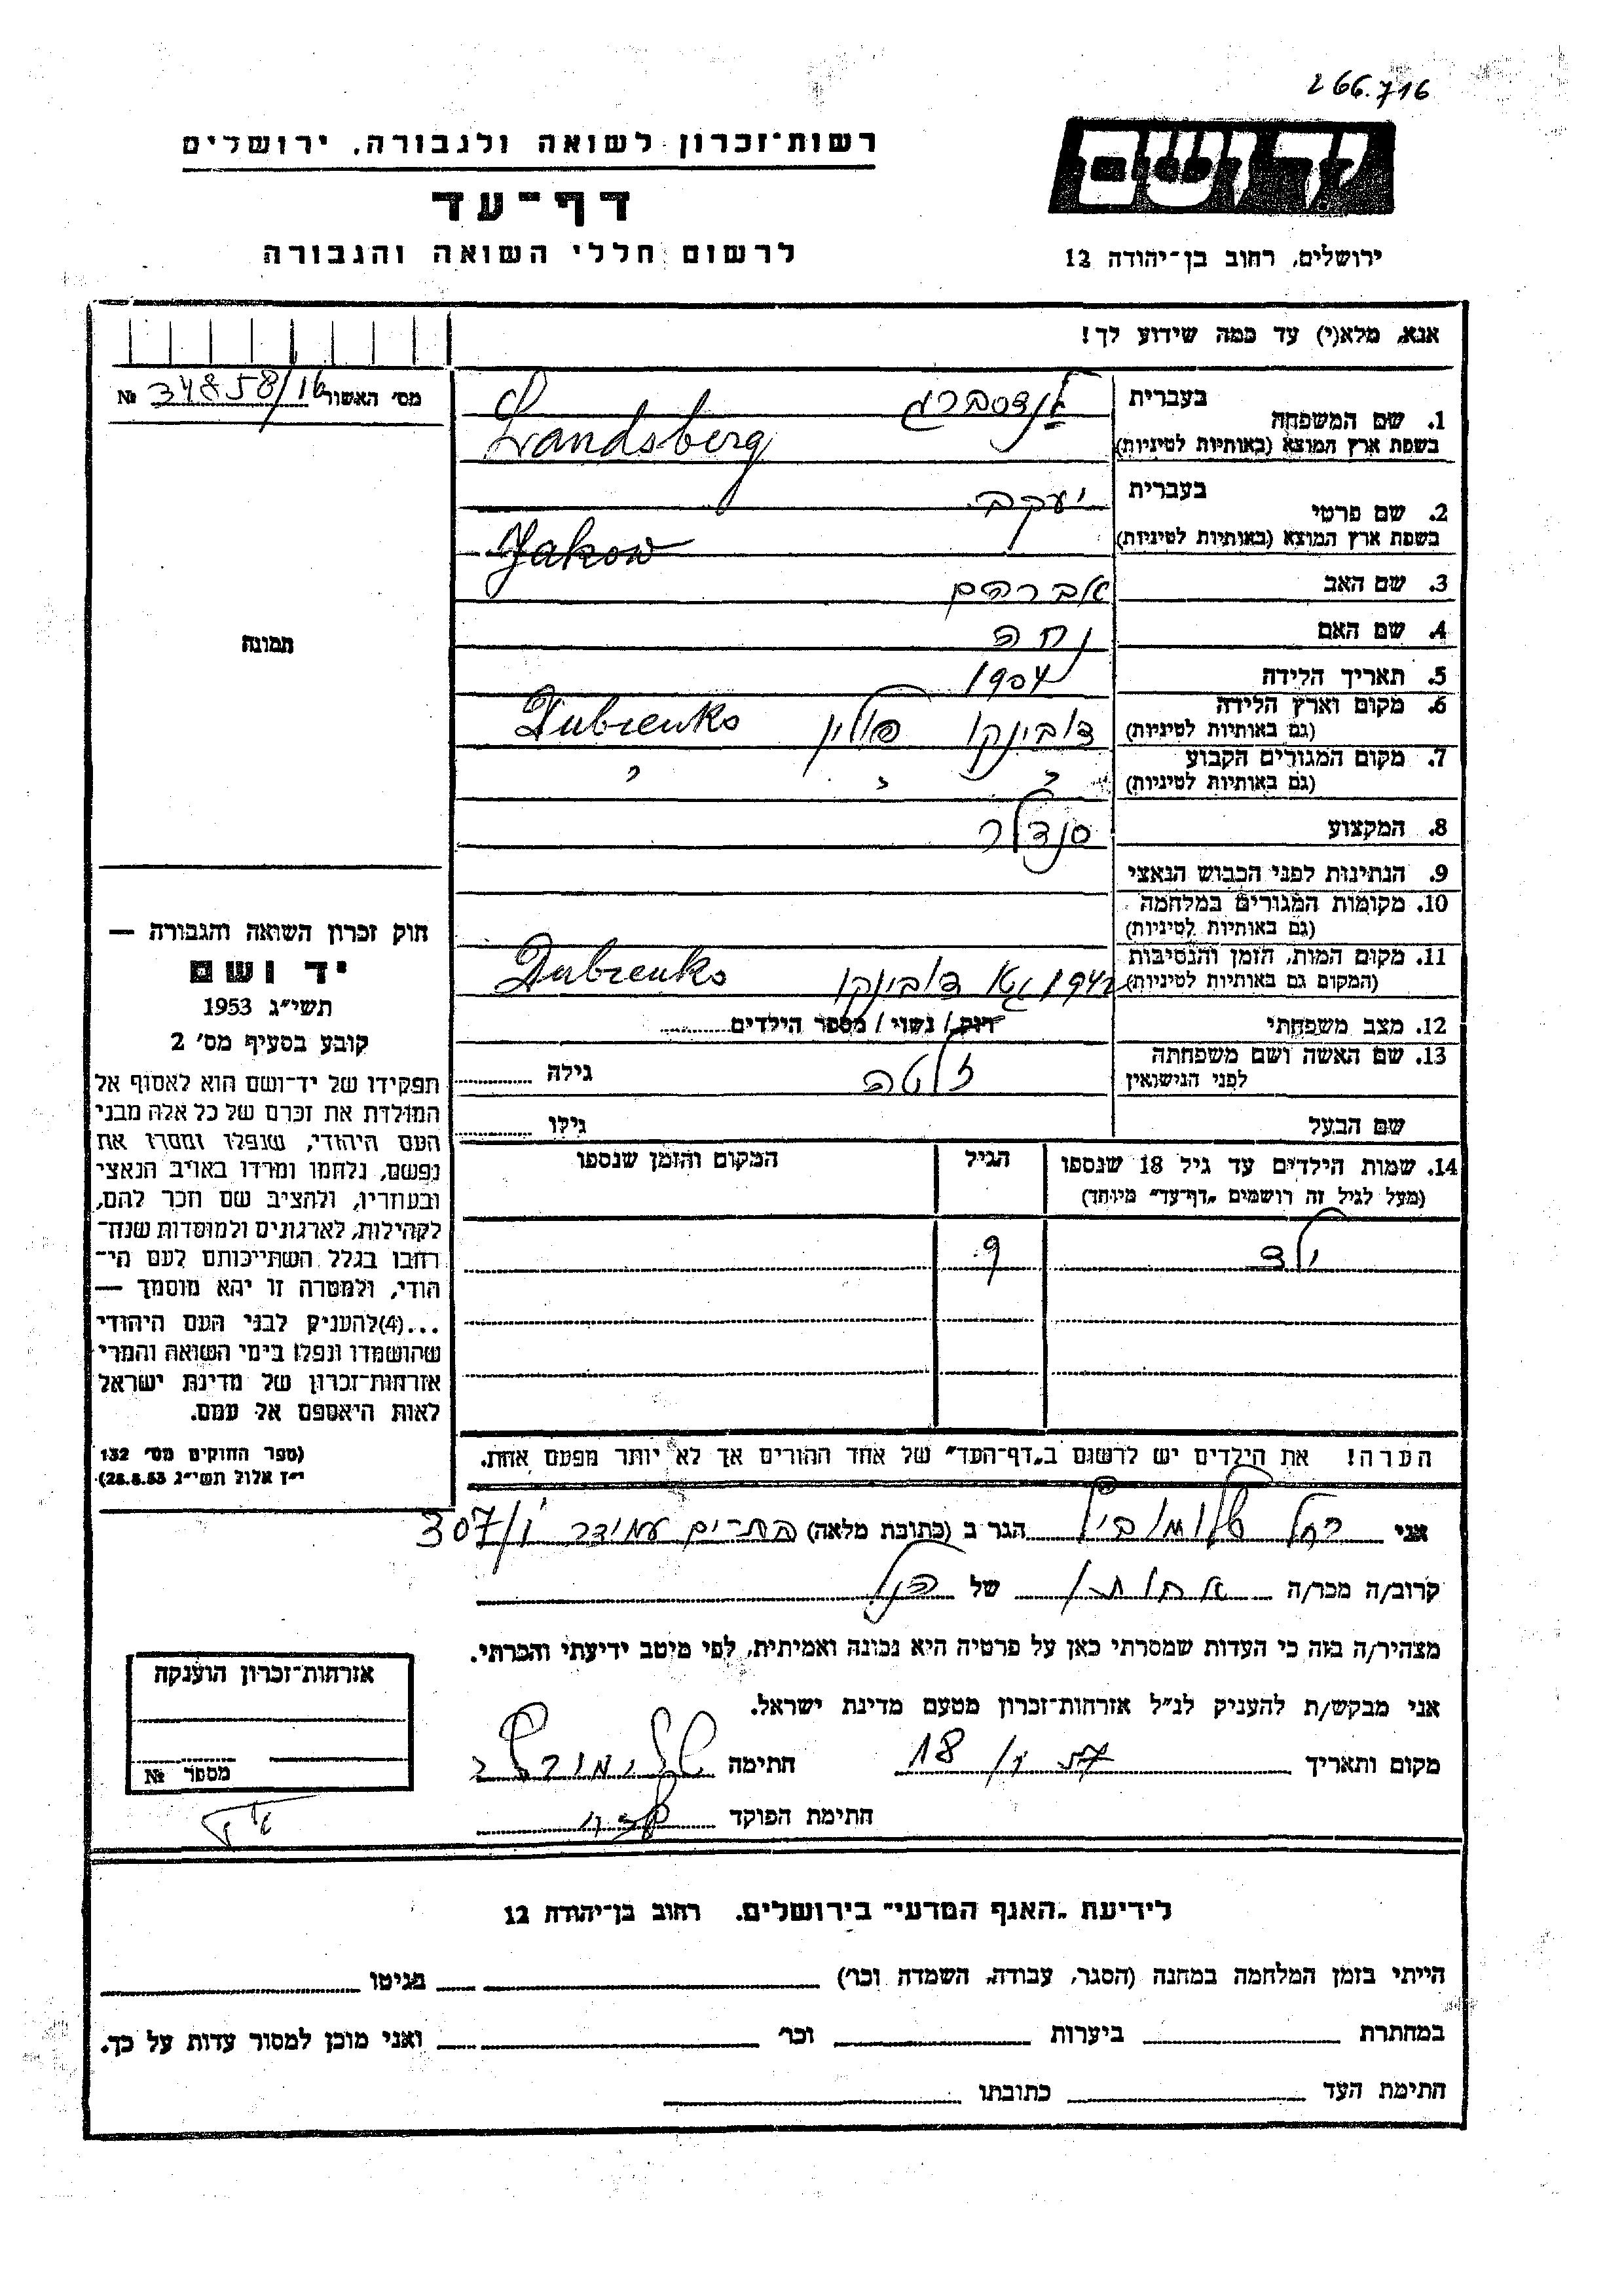 266.716
ידושם
רשות־זכרון לשואה ולגבורה, ירושלים
דף־עד
לרשום חללי השואה והגבורה
ירושלים, רחוב בן־יהודה 12
אנא, מלא(י) עד כמה שידוע לך!
מס' האשור 34858/16 №
1. שם המשפחה
בעברית לנדסברג
בשפת ארץ המוצא (באותיות לטיניות) Landsberg
2. שם פרטי
בעברית יעקב
בשפת ארץ המוצא (באותיות לטיניות) Jakow
3. שם האב אברהם
4. שם האם נחה
5. תאריך הלידה 1904
6. מקום וארץ הלידה דובינקו פולין Dubienko
(גם באותיות לטיניות)
7. מקום המגורים הקבוע " " "
(גם באותיות לטיניות)
8. המקצוע סנדלר
9. הנתינות לפני הכבוש הנאצי
10. מקומות המגורים במלחמה
(גם באותיות לטיניות)
11. מקום המות, הזמן והנסיבות 1942 גטו דובינקו Dubienko
(המקום גם באותיות לטיניות)
12. מצב משפחתי רוק / נשוי / מספר הילדים
13. שם האשה ושם משפחתה זלטה גילה
לפני הנישואין
שם הבעל גילו
14. שמות הילדים עד גיל 18 שנספו הגיל המקום והזמן שנספו
(מעל לגיל זה רושמים „דף־עד" מיוחד)
ילד 9
הערה! את הילדים יש לרשום ב„דף־העד" של אחד ההורים אך לא יותר מפעם אחת.
תמונה
חוק זכרון השואה והגבורה —
יד ושם
תשי"ג 1953
קובע בסעיף מס' 2
תפקידו של יד־ושם הוא לאסוף אל
המולדת את זכרם של כל אלה מבני
העם היהודי, שנפלו ומסרו את
נפשם, נלחמו ומרדו באויב הנאצי
ובעוזריו, ולהציב שם וזכר להם,
לקהילות, לארגונים ולמוסדות שנח־
רבו בגלל השתייכותם לעם הי־
הודי, ולמטרה זו יהא מוסמך —
...(4)להעניק לבני העם היהודי
שהושמדו ונפלו בימי השואה והמרי
אזרחות־זכרון של מדינת ישראל
לאות היאספם אל עמם.
(ספר החוקים מס' 132
י"ז אלול תשי"ג 28.8.53)
אני רחל הגר ב (כתובת מלאה) עמידר 307/
קרוב/ה מכר/ה אחות של הנ"ל
מצהיר/ה בזה כי העדות שמסרתי כאן על פרטיה היא נכונה ואמיתית, לפי מיטב ידיעתי והכרתי.
אני מבקש/ת להעניק לנ"ל אזרחות־זכרון מטעם מדינת ישראל.
מקום ותאריך 18 חתימה
חתימת הפוקד
אזרחות־זכרון הוענקה
מספר №
לידיעת „האגף המדעי" בירושלים. רחוב בן־יהודה 12
הייתי בזמן המלחמה במחנה (הסגר, עבודה, השמדה וכו') בגיטו
במחתרת ביערות וכו' ואני מוכן למסור עדות על כך.
חתימת העד כתובתו